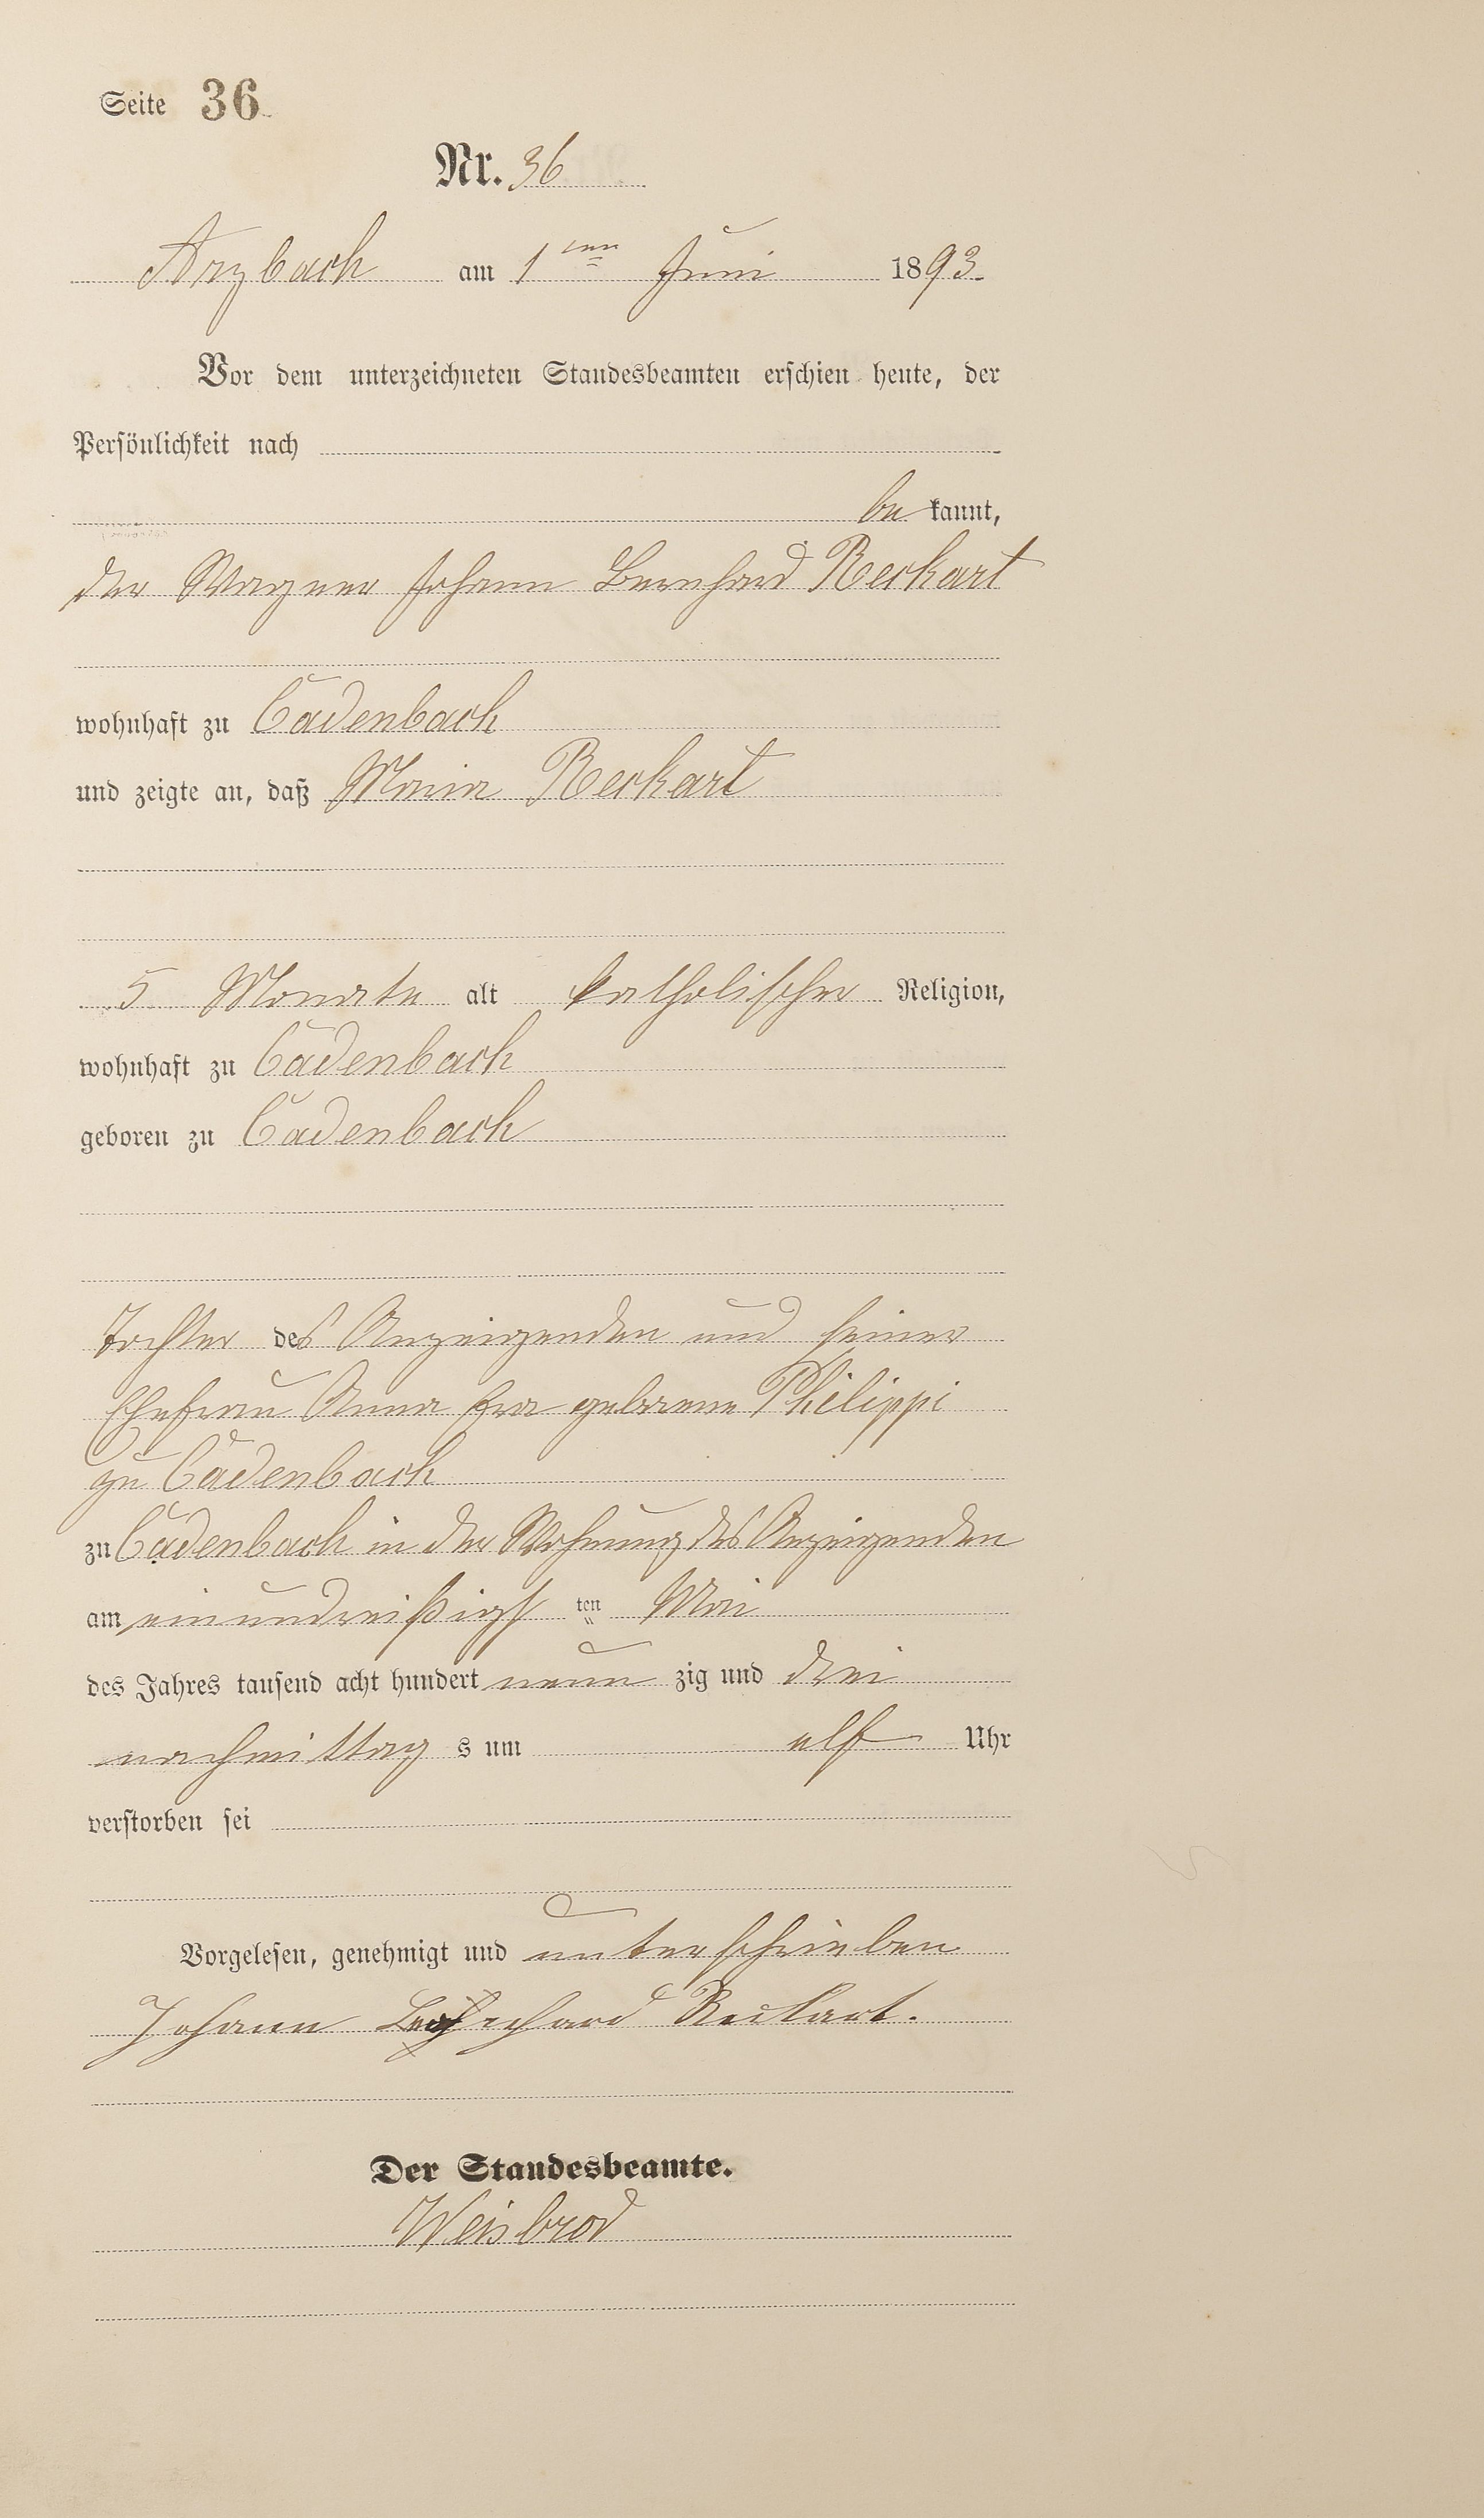 Seite 36
Nr. 36
Arzbach am 1ten Juni 1893.
Vor dem unterzeichneten Standesbeamten erschien heute, der
Persönlichkeit nach
be kannt,
der Wagner Johann Bernhard Reckart
wohnhaft zu Cadenbach
und zeigte an, daß Maria Reckart
5 Monate alt katholischer Religion,
wohnhaft zu Cadenbach
geboren zu Cadenbach
Tochter des Anzeigenden und seiner
Ehefrau Anna Eva geborene Philippi
zu Cadenbach
zu Cadenbach in der Wohnung des Anzeigenden
am einundreißigs ten Mai
des Jahres tausend acht hundert neun zig und drei
nachmittag s um elf Uhr
verstorben sei
Vorgelesen, genehmigt und unterschrieben
Johann Reckart.
Der Standesbeamte.
Weisbrod